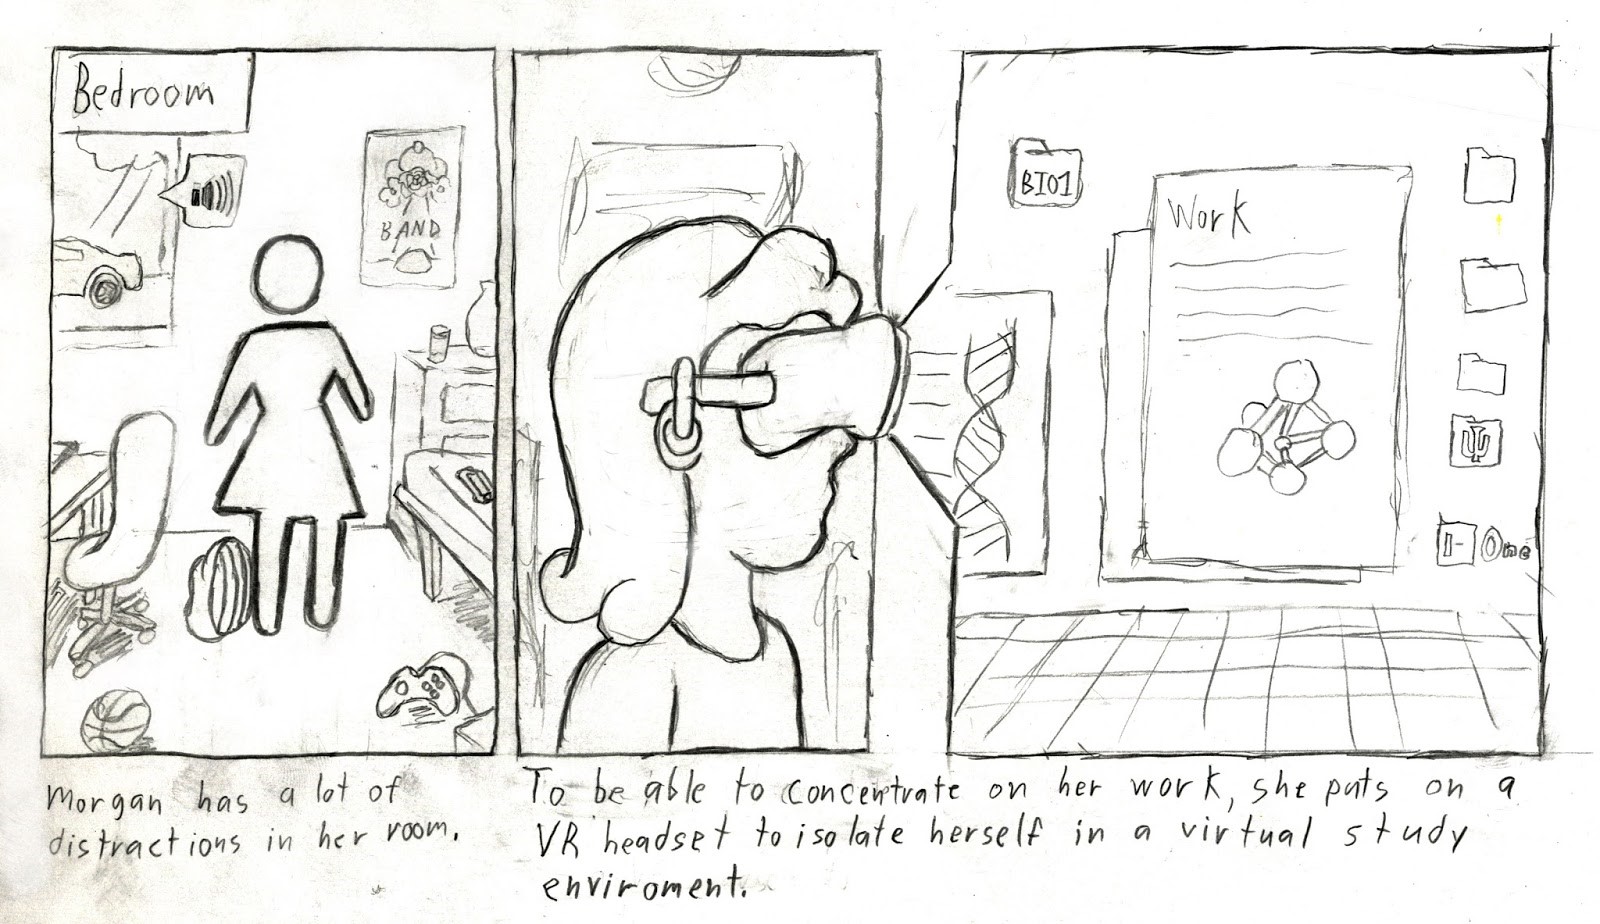 Bedroom
BAND
BIO1
Work
One
Morgan has a lot of
distractions in her room.
To be able to concentrate on her work, she puts on a
VR headset to isolate herself in a virtual study
enviroment.